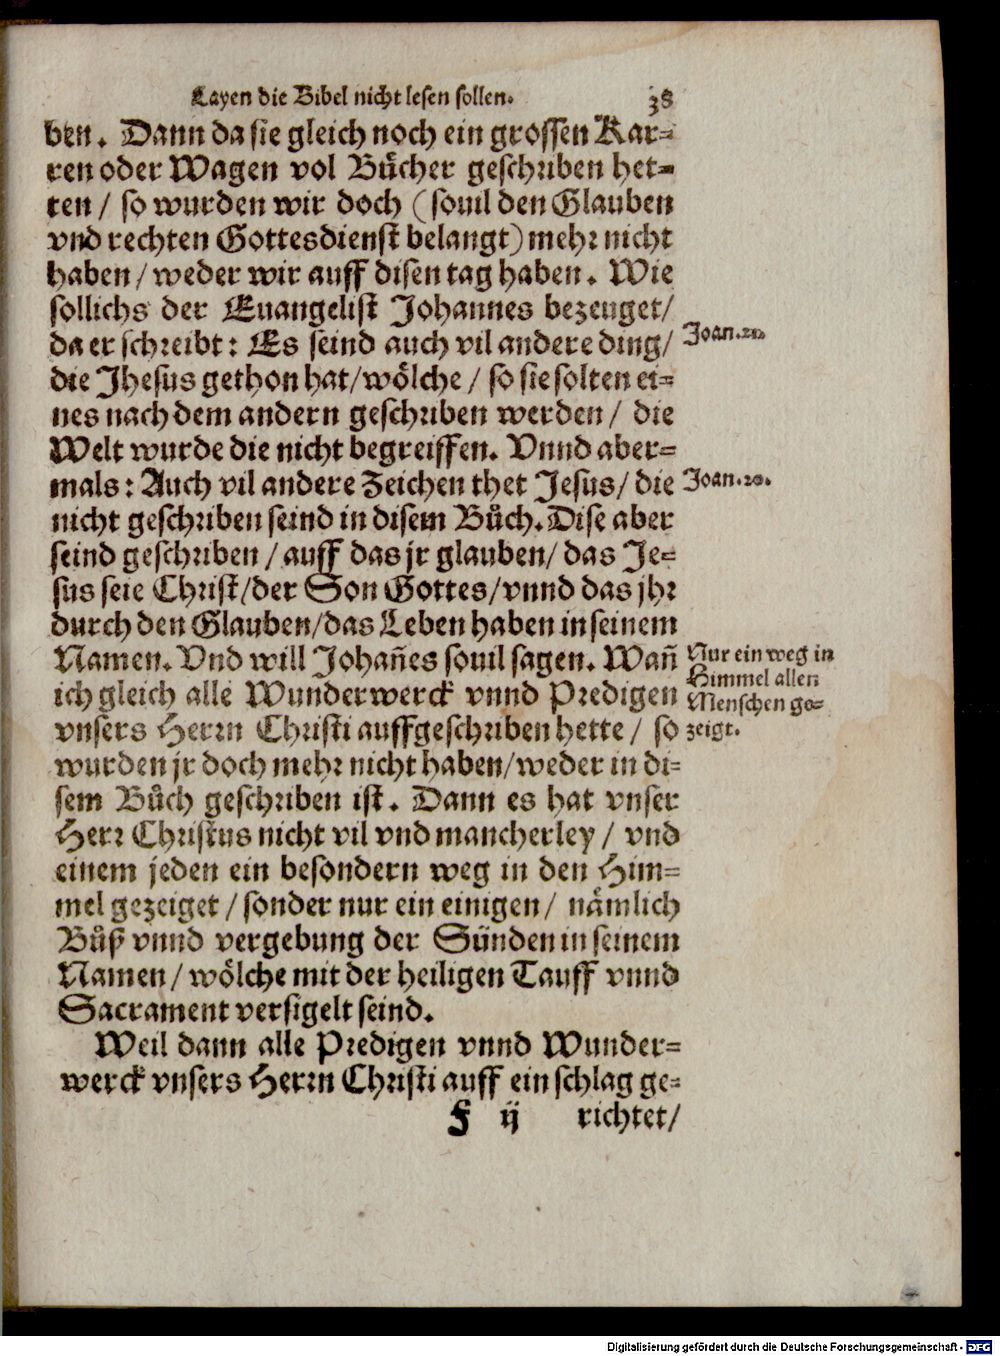 Layen die Bibel nicht lesen sollen. 38
ben. Dann da sie gleich noch ein grossen Kar-
ren oder Wagen vol Bůcher geschriben het-
ten / so wurden wir doch (souil den Glauben
vnd rechten Gottesdienst belangt) mehr nicht
haben / weder wir auff disen tag haben. Wie
sollichs der Euangelist Johannes bezeuget /
da er schreibt: Es seind auch vil andere ding /
Joan. 21.
die Jhesus gethon hat / wölche / so sie solten ei-
nes nach dem andern geschriben werden / die
Welt wurde die nicht begreiffen. Vnnd aber-
mals: Auch vil andere Zeichen thet Jesus / die
Joan. 20.
nicht geschriben seind in disem Bůch. Dise aber
seind geschriben / auff das jr glauben / das Je-
sus seie Christ / der Son Gottes / vnnd das jhr
durch den Glauben / das Leben haben in seinem
Namen. Vnd will Johañes souil sagen. Wañ
ich gleich alle Wunderwerck vnnd Predigen
vnsers Herrn Christi auffgeschriben hette / so
Nur ein weg in
Himmel allen
Menschen ge-
zeigt.
wurden jr doch mehr nicht haben / weder in di-
sem Bůch geschriben ist. Dann es hat vnser
Herr Christus nicht vil vnd mancherley / vnd
einem jeden ein besondern weg in den Him-
mel gezeiget / sonder nur ein einigen / nämlich
Bůß vnnd vergebung der Sünden in seinem
Namen / wölche mit der heiligen Tauff vnnd
Sacrament versigelt seind.
Weil dann alle Predigen vnnd Wunder-
werck vnsers Herrn Christi auff ein schlag ge-
F ij richtet /
Digitalisierung gefördert durch die Deutsche Forschungsgemeinschaft - DFG